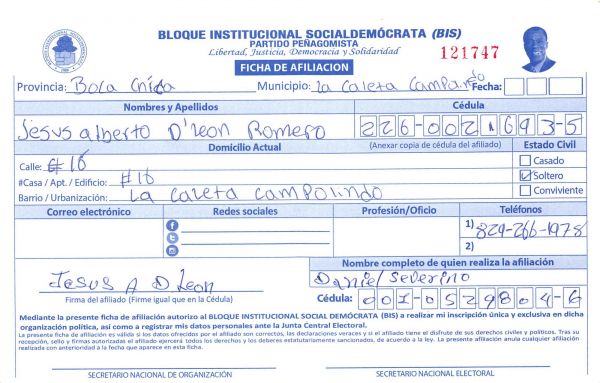 BLOQUE INSTITUCIONAL SOCIALDEMÓCRATA (BIS)
PARTIDO PEÑAGOMISTA
Libertad, Justicia, Democracia y Solidaridad
121747
FICHA DE AFILIACION
Provincia: Boca Chida Municipio: La Caleta Campolindo Fecha:
Nombres y Apellidos Cédula
Jesus alberto D'Leon Romero 226-0021693-5
Domicilio Actual (Anexar copia de cédula del afiliado) Estado Civil
Calle: # 16 Casado
#Casa / Apt. / Edificio: #16 Soltero
Barrio / Urbanización: La Caleta Campolindo Conviviente
Correo electrónico Redes sociales Profesión/Oficio Teléfonos
1) 829-266-1978
2)
Nombre completo de quien realiza la afiliación
Jesus A D Leon Daniel Severino
Firma del afiliado (Firme igual que en la Cédula) Cédula: 001-0529804-6
Mediante la presente ficha de afiliación autorizo al BLOQUE INSTITUCIONAL SOCIAL DEMÓCRATA (BIS) a realizar mi inscripción única y exclusiva en dicha
organización política, así como a registrar mis datos personales ante la Junta Central Electoral.
La presente ficha de afiliación es válida si los datos ofrecidos por el afiliado son correctos, las declaraciones veraces y si el afiliado tiene el disfrute de sus derechos civiles y políticos. Tras su
recepción, sello y firmas autorizadas el afiliado ejercerá todos los derechos y los deberes estatutariamente sancionados, de acuerdo a la ley. La presente afiliación anula cualquier afiliación
realizada con anterioridad a la fecha que aparece en esta ficha.
SECRETARIO NACIONAL DE ORGANIZACIÓN SECRETARIO NACIONAL ELECTORAL